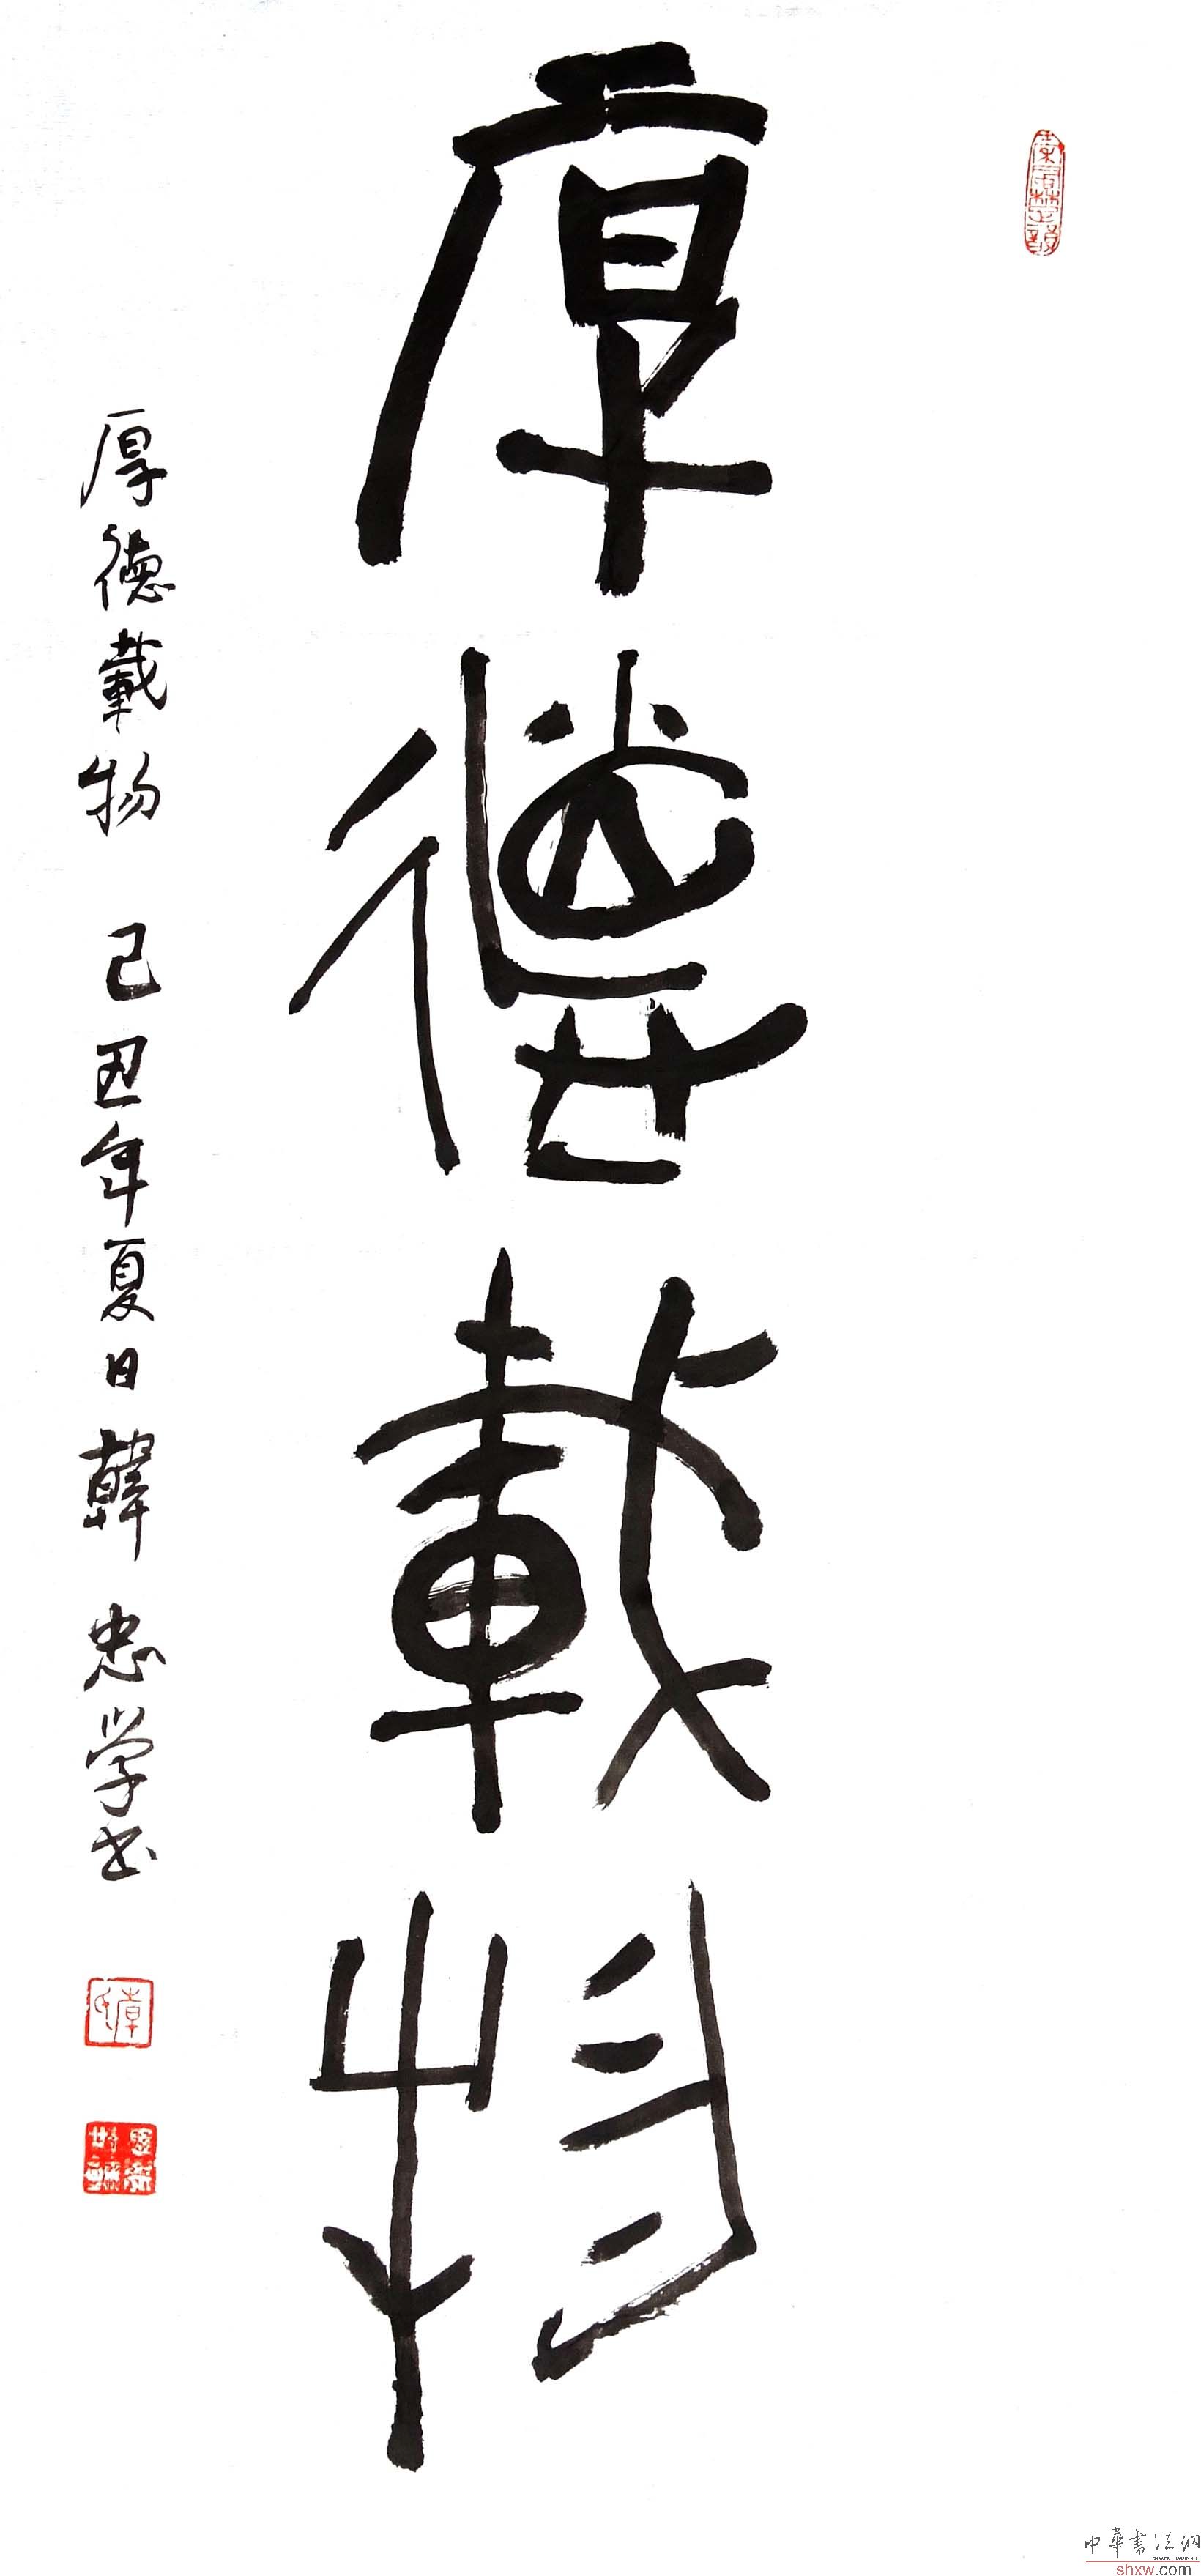 厚德載物
厚德載物 己丑年夏日韓忠学书
中華書法網
shxw.com